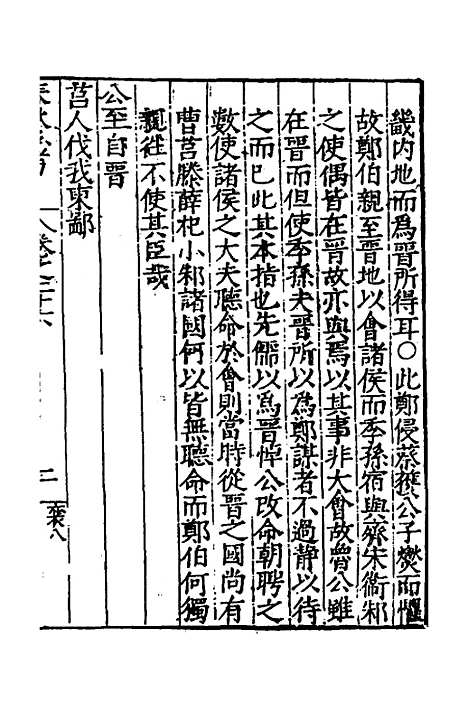 畿内地而爲晉所得耳○此鄭侵蔡獲公子燮而懼
故鄭伯親至晉地以會諸侯而季孫宿與齊宋衞邾
之使偶皆在晉故亦與焉以其事非大會故魯公雖
在晉而但使季孫夫晉所以爲鄭謀者不過靜以待
之而已此其本指也先儒以爲晉悼公改命朝聘之
數使諸侯之大夫聽命於會則當時從晉之國尚有
曹莒滕薛杞小邾諸國何以皆無聽命而鄭伯何獨
親徃不使其臣哉
公至自晉
莒人伐我東鄙
卷之二十六
二